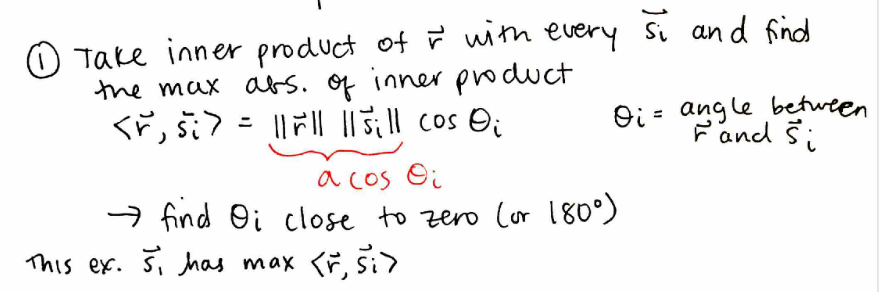 ① Take inner product of r⃗ with every s⃗ᵢ and find
the max abs. of inner product
<r⃗, s⃗ᵢ> = ||r⃗|| ||s⃗ᵢ|| cos θᵢ θi = angle between
r⃗ and s⃗ᵢ
a cos θᵢ
→ find θi close to zero (or 180°)
This ex. s⃗₁ has max <r⃗, s⃗i>